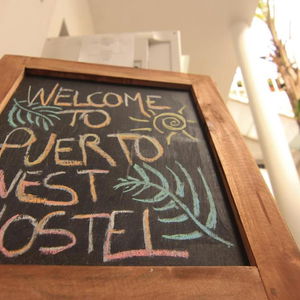 WELCOME
TO
PUERTO
WEST
HOSTEL